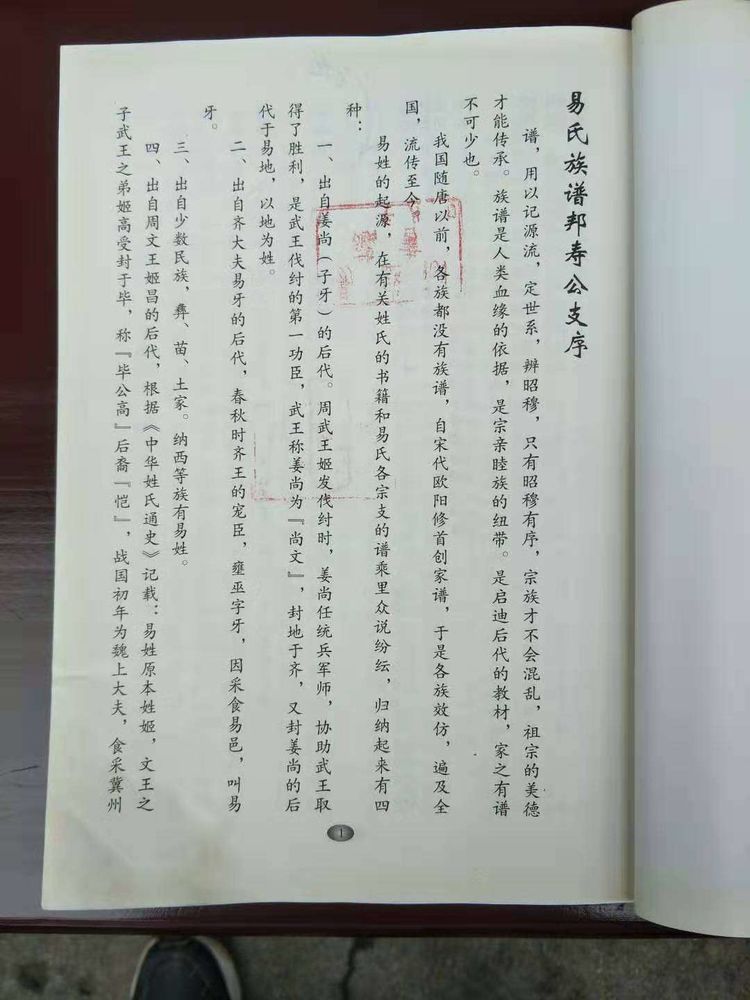 易氏族谱邦寿公支序
谱，用以记源流，定世系，辨昭穆，只有昭穆有序，宗族才不会混乱，祖宗的美德
才能传承。族谱是人类血缘的依据，是宗亲睦族的纽带。是启迪后代的教材，家之有谱
不可少也。
我国随唐以前，各族都没有族谱，自宋代欧阳修首创家谱，于是各族效仿，遍及全
国，流传至今。
易姓的起源，在有关姓氏的书籍和易氏各宗支的谱乘里众说纷纭，归纳起来有四
种：
一、出自姜尚（子牙）的后代。周武王姬发伐纣时，姜尚任统兵军师，协助武王取
得了胜利，是武王伐纣的第一功臣，武王称姜尚为『尚文』，封地于齐，又封姜尚的后
代于易地，以地为姓。
二、出自齐大夫易牙的后代，春秋时齐王的宠臣，雍巫字牙，因采食易邑，叫易
牙。
三、出自少数民族，彝、苗、土家。纳西等族有易姓。
四、出自周文王姬昌的后代，根据《中华姓氏通史》记载：易姓原本姓姬，文王之
子武王之弟姬高受封于毕，称『毕公高』后裔『恺』，战国初年为魏上大夫，食采冀州
1